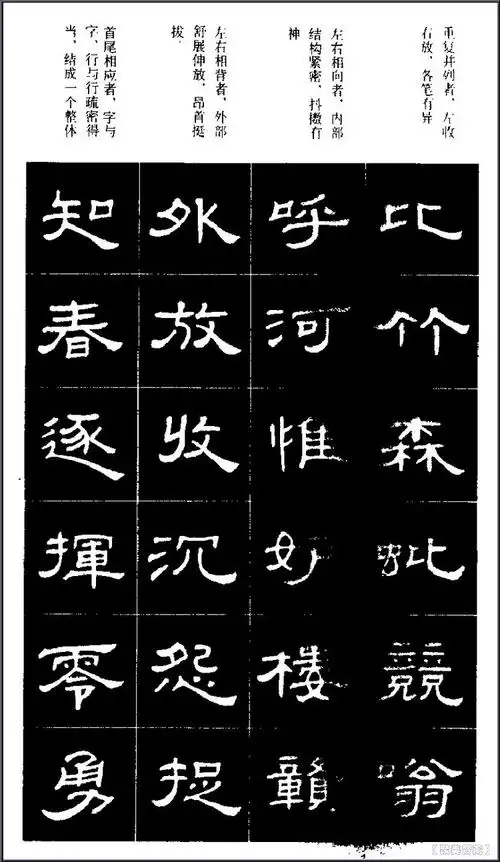 重复并列者、左收
右放，各笔有异
左右相向者，内部
结构紧密，抖擞有
神
左右相背者，外部
舒展伸放，昂首挺
拔
首尾相应者，字与
字、行与行疏密得
当，结成一个整体
比竹森批競嗡
呼河惟好楼贛
外放收沉怨捉
知春逐揮零勇